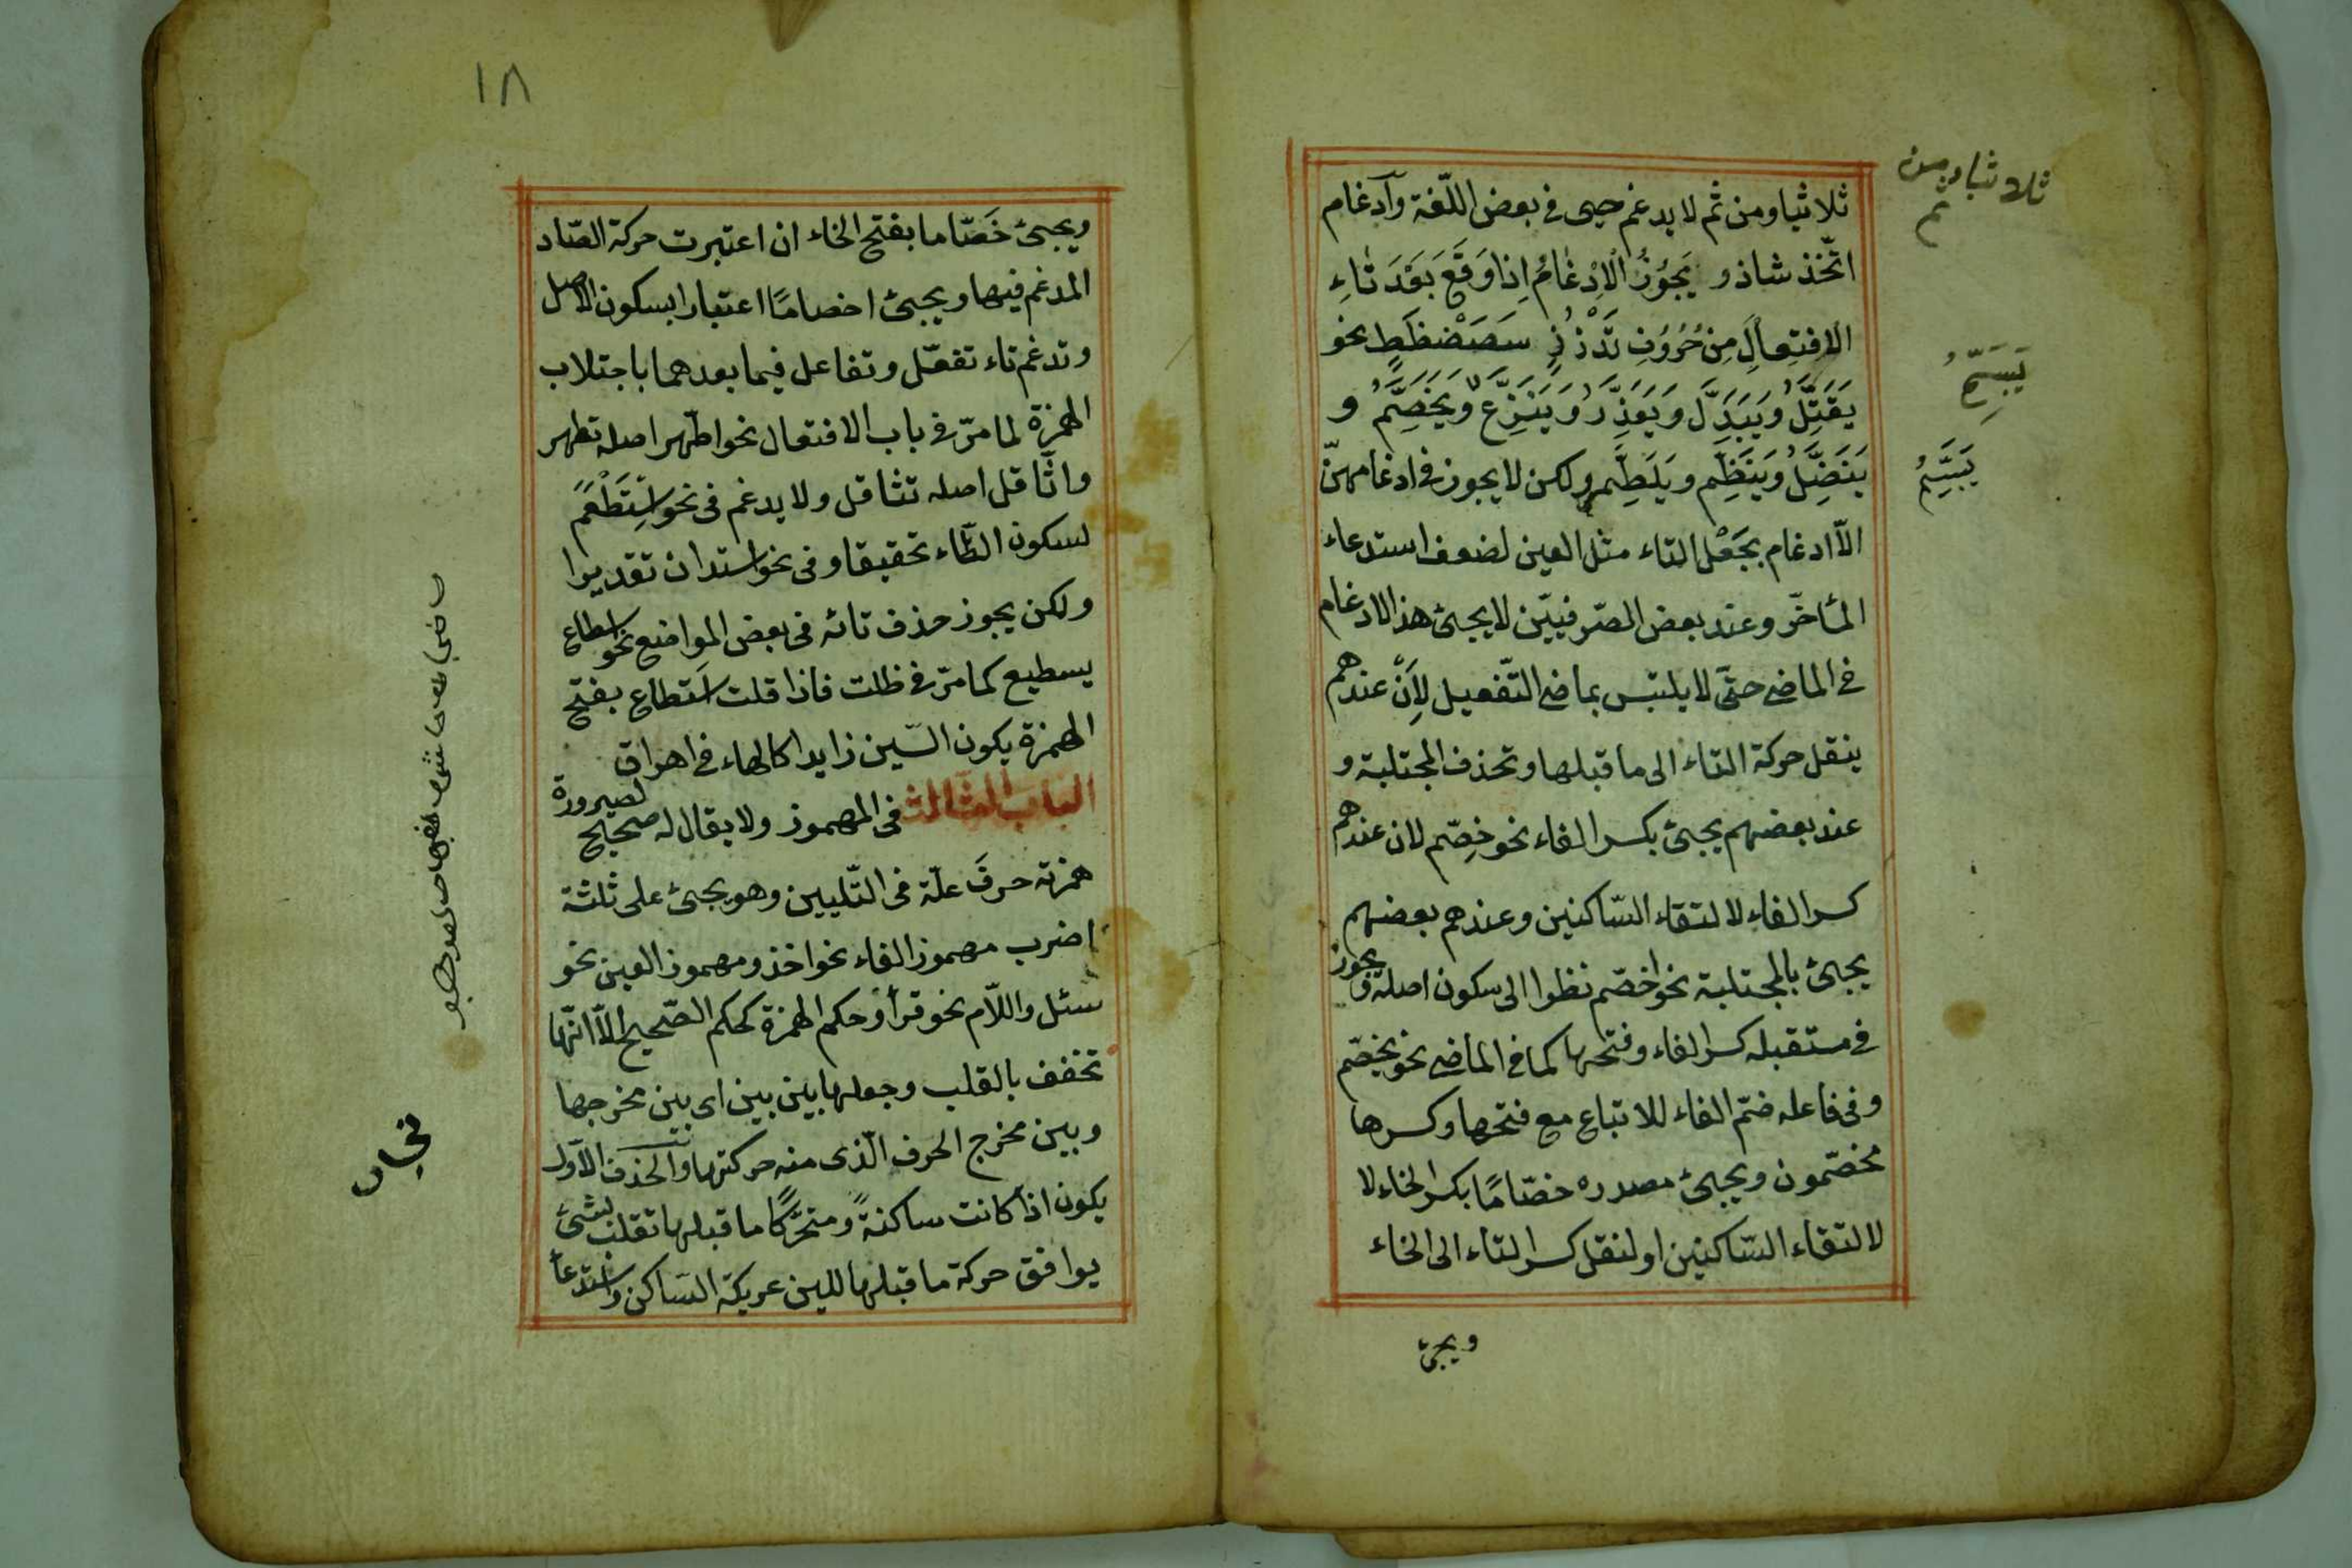 ثلاثيا ومن ثم لا يدغم حيى فى بعض اللّغة وآدغام
اتّخذ شاذ و يَجُوزُ الْاِدْغَامُ اِذَا وَقَعَ بَعْدَ تَاءِ
الافتِعالِ مِنْ حُرُوفِ تَدْذُذٍ سَصَضْضظَطٍ نحو
يَقَتِّلُ وَيَبَدِّل وَيَعَذِّر وَيَنَزِّع وَيَخَصِّمُ و
يَنَضِّلُ وَيَنَظِّم ويَلَطِّم ولكن لا يجوز فى ادغامهنّ
الاّ ادغام بجَعْل التاء مثل العين لضعف استدعاء
المأخّر وعند بعض الصّرفيّين لا يجئ هذ الادغام
فى الماضى حتّى لا يلتبس بماضى التّفعيل لِأَنَّ عندهم
ينقل حركة التاء الى ما قبلها وتحذف المجتلبة و
عند بعضهم يجئ بكسر الفاء نحو خِصّم لان عندهم
كسر الفاء لالتقاء السّاكنين وعندهم بعضهم
يجئ بالمجتلبة نحو اخصّم نظرا الى سكون اصله ويجوز
فى مستقبله كسر الفاء وفتحها كما فى الماضى نحو يخصّم
وفى فاعله ضمّ الفاء للاتباع مع فتحها وكسرها
مخصّمون ويجئ مصدره خصّامًا بكسر الخاء لا
لالتقاء السّاكنين او لنقل كسر التاء الى الخاء
ويجئ
ثلاثيا ومن
ثم
يَبَسِّمُ
١٨
ويجئ خَصّاما بفتح الخاء ان اعتبرت حركة الصّاد
المدغم فيها ويجئ اخصامًا اعتبارا بسكون الاصل
وتدغم تاء تفعّل وتفاعل فيما بعدهما باجتلاب
الهمزة لما مرّ فى باب الافتعال نحو اطّهر اصله تطهر
واثّاقل اصله تثاقل ولا يدغم فى نحو اسْتَطْعَمَ
لسكون الطّاء تحقيقا وفى نحو استدان تقديرا
ولكن يجوز حذف تائه فى بعض المواضع نحو اسطاع
يسطيع كما مرّ فى ظلت فاذا قلت اَستطاع بفتح
الهمزة يكون السّين زايدا كالهاء فى اهراق
الباب الثالث فى المهموز ولا يقال له صحيح لصيرورة
همزته حرفَ علّة فى التّليين وهو يجئ على ثلثة
اضرب مهموز الفاء نحو اخذ ومهموز العين نحو
سئل واللّام نحو قرأ وحكم الهمزة كحكم الصّحيح الاّ انّها
تخفف بالقلب وجعلها بين بين اى بين مخرجها
وبين مخرج الحرف الّذى منه حركتها والحذف الاوّل
يكون اذا كانت ساكنةً ومتحرّكًا ما قبلها تقلب لشئ
يوافق حركة ما قبلها للين عريكة السّاكن واستدعاء